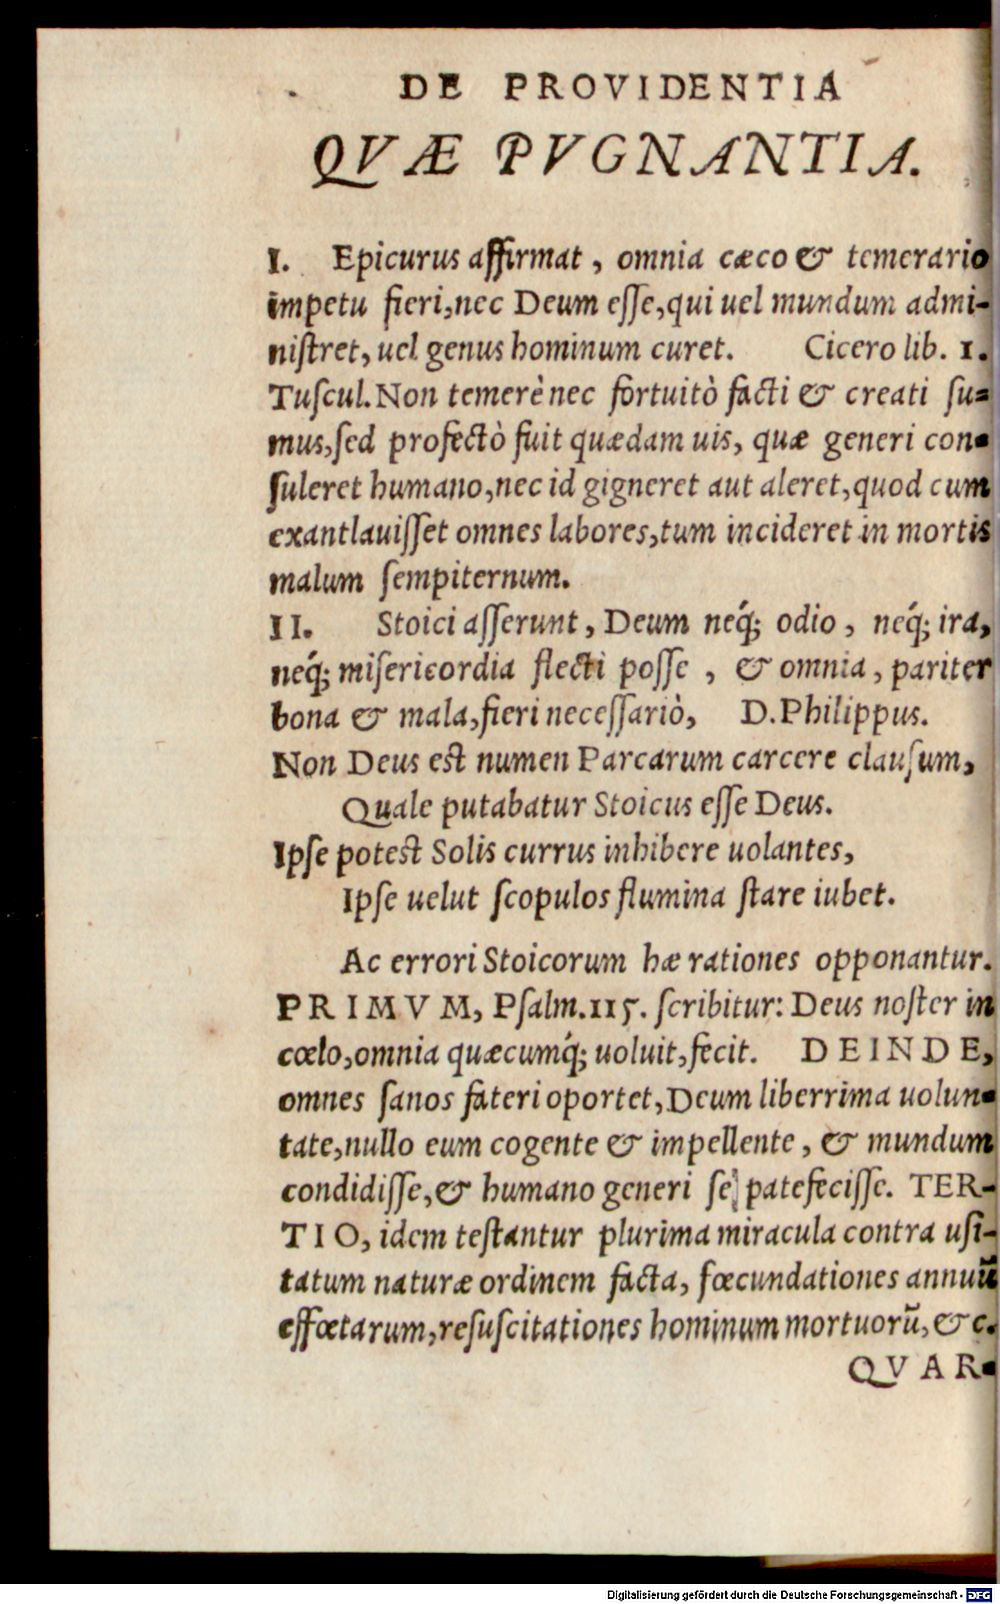 DE PROVIDENTIA
QVÆ PVGNANTIA.
I. Epicurus affirmat, omnia cæco & temerario
impetu fieri, nec Deum esse, qui uel mundum admi-
nistret, uel genus hominum curet. Cicero lib. 1.
Tuscul. Non temerè nec fortuitò facti & creati su=
mus, sed profectò fuit quædam uis, quæ generi con=
suleret humano, nec id gigneret aut aleret, quod cum
exantlauisset omnes labores, tum incideret in mortis
malum sempiternum.
II. Stoici asserunt, Deum neq́; odio, neq́; ira,
neq́; misericordia flecti posse, & omnia, pariter
bona & mala, fieri necessariò, D. Philippus.
Non Deus est numen Parcarum carcere clausum,
Quale putabatur Stoicus esse Deus.
Ipse potest Solis currus inhibere uolantes,
Ipse uelut scopulos flumina stare iubet.
Ac errori Stoicorum hæ rationes opponantur.
PRIMVM, Psalm. 115. scribitur: Deus noster in
cœlo, omnia quæcumq́; uoluit, fecit. DEINDE,
omnes sanos fateri oportet, Deum liberrima uolun=
tate, nullo eum cogente & impellente, & mundum
condidisse, & humano generi se patefecisse. TER-
TIO, idem testantur plurima miracula contra usi-
tatum naturæ ordinem facta, fœcundationes annuũ
effœtarum, resuscitationes hominum mortuorũ, &c.
QVAR=
Digitalisierung gefördert durch die Deutsche Forschungsgemeinschaft - DFG